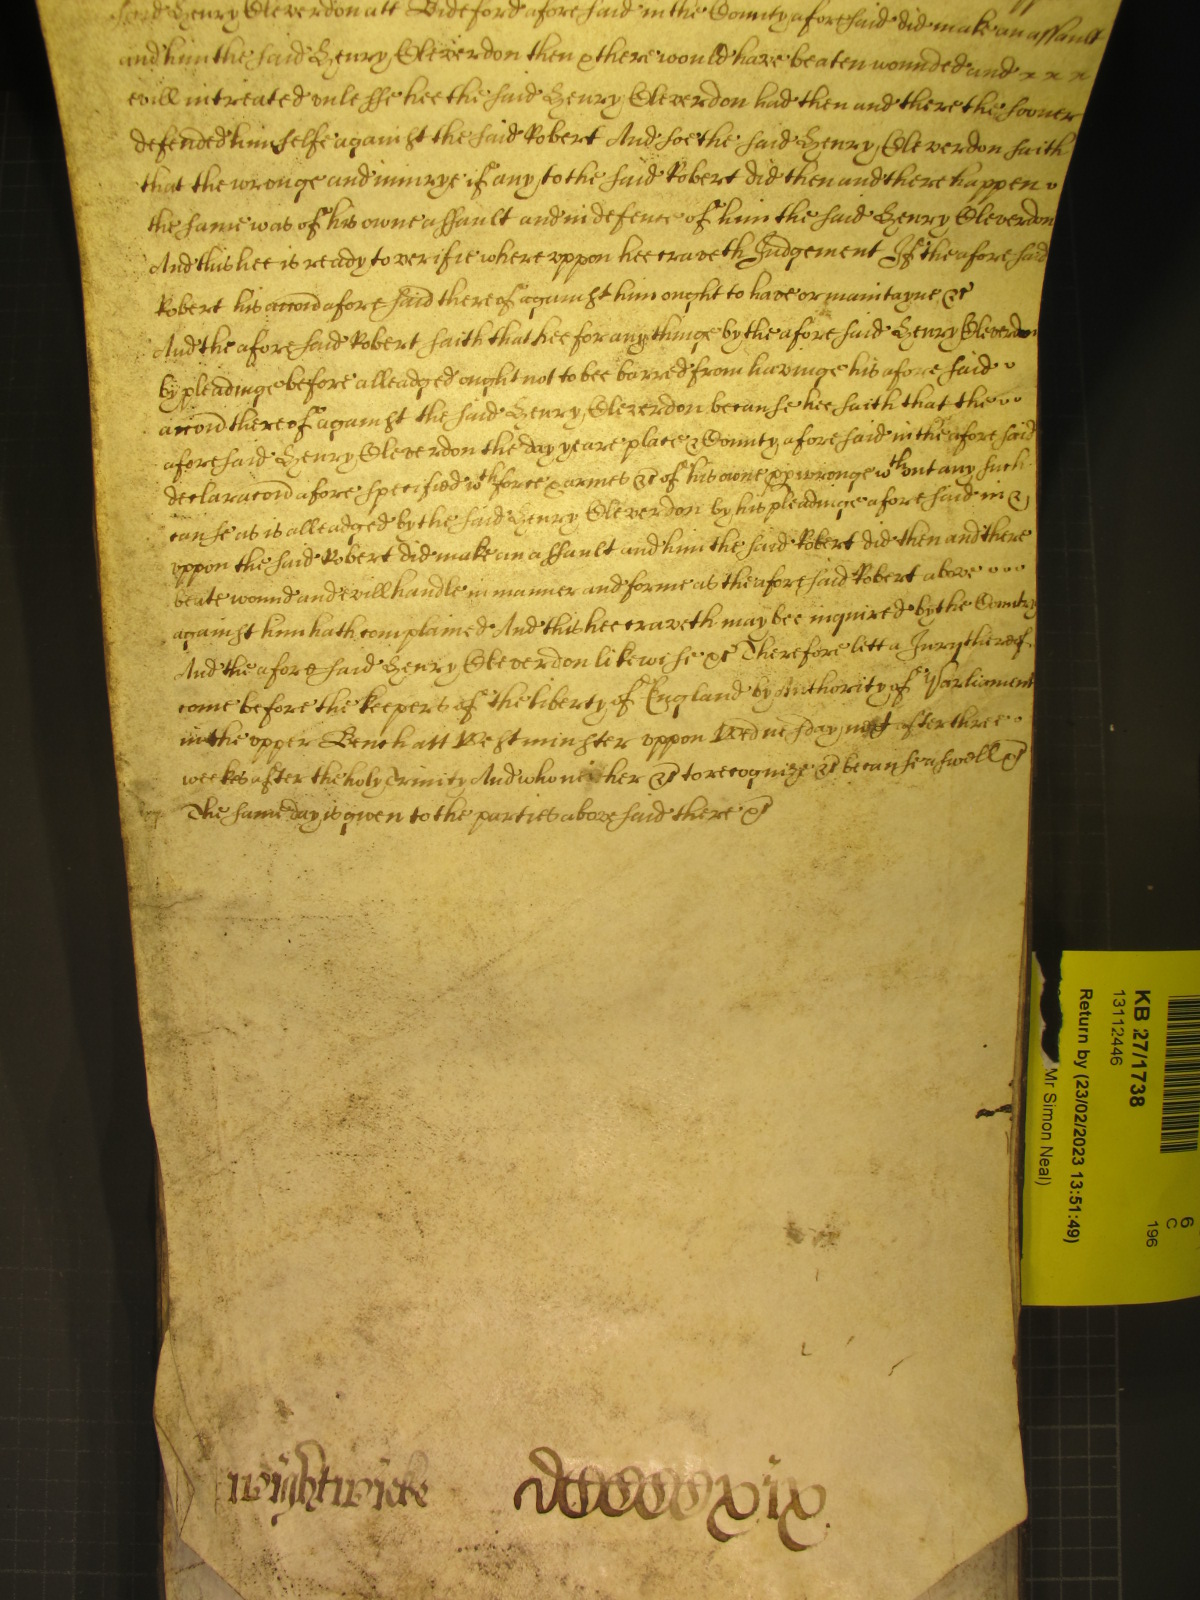 said Henry Cleverdon att Bideford aforesaid in the County aforesaid did make an assault
and him the said Henry Cleverdon then & there would have beaten wounded and
evill intreated unlesse hee the said Henry Cleverdon had then and there the sooner
defended himselfe against the said Robert And soe the said Henry Cleverdon saith
that the wronge and iniurye if any to the said Robert did then and there happen
the same was of his owne assault and in defence of him the said Henry Cleverdon
And this hee is ready to verifie whereuppon hee craveth Judgement If the aforesaid
Robert his accōn aforesaid thereof against him ought to have or maintayne &c
And the aforesaid Robert saith that hee for any thinge by the aforesaid Henry Cleverdon
by pleadinge before alleadged ought not to bee barred from havinge his aforesaid
accōn thereof against the said Henry Cleverdon because hee saith that the
aforesaid Henry Cleverdon the day yeare place & County aforesaid in the aforesaid
declaracōn afore specified wth force & armes &c of his owne ꝓper wronge wthout any such
cause as is alleadged by the said Henry Cleverdon by his pleadinge aforesaid in &
uppon the said Robert did make an assault and him the said Robert did then and there
beate wound and evill handle in manner and forme as the aforesaid Robert above
against him hath complained And this hee craveth may bee inquired by the Country
And the aforesaid Henry Cleverdon likewise &c Therefore lett a Jury thereof
come before the keepers of the liberty of England by Authority of Parliament
in the upper Bench att Westminster uppon Wednesday next after three
weekes after the holy Trinity And who neither &c to recognize &c because aswell &c
The same day is given to the parties abovesaid there &c
wightwicke dCCCCxix
KB 27/1738
13112446
Return by (23/02/2023 13:51:49)
Mr Simon Neal)
6
C
196